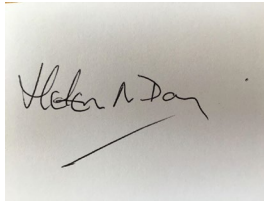 Helen N Day